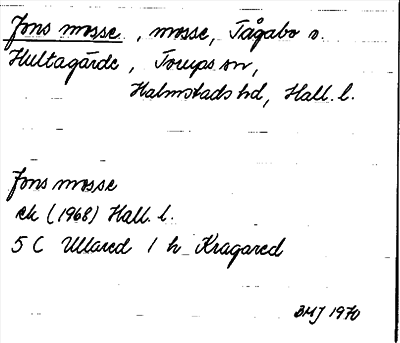 Jons mosse, mosse, Tågabo o.
Hultagärde, Torups sn,
Halmstads hd, Hall. l.
Jons mosse
ek (1968) Hall. l.
5 C Ullared 1 h Kragared
BMJ 1970